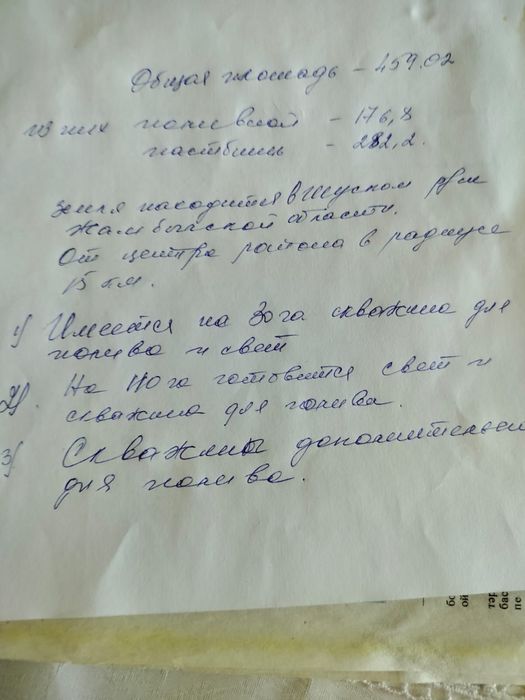 Общая площадь - 459.02
из них поливной - 176,8
пастбищь - 282,2.
Земля находится в Шуском р/не
Жамбылской области.
От центра района в радиусе
15 км.
1) Имеется на 30га скважина для
полива и свет
2). На 110га готовится свет и
скважина для полива.
3) Скважины дополнительные
для полива.